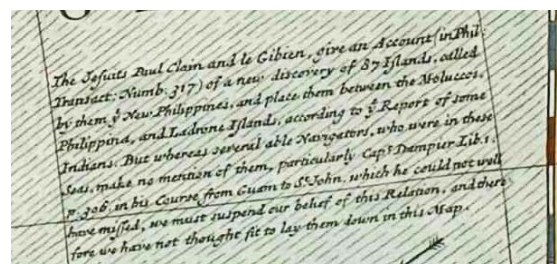 The Jesuits Paul Clain and le Gibien, give an Account (in Phil:
Transact: Numb: 317) of a new discovery of 87 Islands, called
by them yᵉ New Philippines, and place them between the Moluccos,
Philippina, and Ladrone Islands, according to yᵉ Report of some
Indians. But whereas several able Navigators, who were in these
Seas, make no mention of them, particularly Capᵗ Dampier Lib. 1.
P. 306. in his Course from Guam to Sᵗ John, which he could not well
have missed, we must suspend our belief of this Relation, and there
fore we have not thought fit to lay them down in this Map.